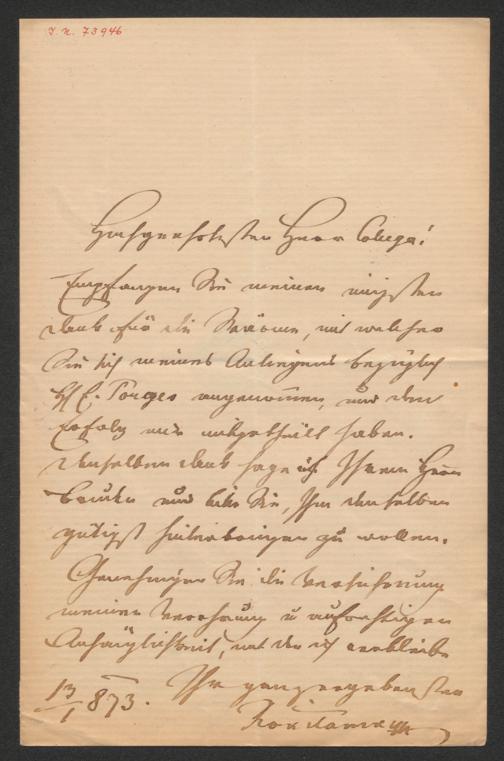 I. N. 73946
Hochgeehrtester Herr Collega!
Empfangen Sie meinen innigsten
Dank für die Wärme, mit welcher
Sie sich meines Anliegens bezüglich
H E. Porges angenommen, und den
Erfolg mir mitgetheilt haben.
Denselben Dank sage ich Ihrem Herrn
Bruder und bitte Sie, Ihm denselben
gütigst hinterbringen zu wollen.
Genehmigen Sie die Versicherung
meiner Verehrung u aufrichtigen
Anhänglichkeit, mit der ich verbleibe
Ihr ganz ergebenster
13/1 873.